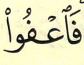 فَٱعْفُوا۟